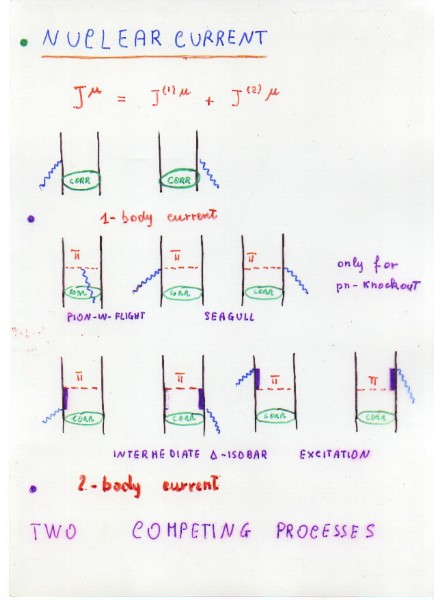 • NUCLEAR CURRENT
J^μ = J^(1)μ + J^(2)μ
CORR CORR
• 1-body current
π π π only for
CORR CORR CORR pn-knockout
PION-IN-FLIGHT SEAGULL
π π π π
CORR CORR CORR CORR
INTERMEDIATE Δ-ISOBAR EXCITATION
• 2-body current
TWO COMPETING PROCESSES